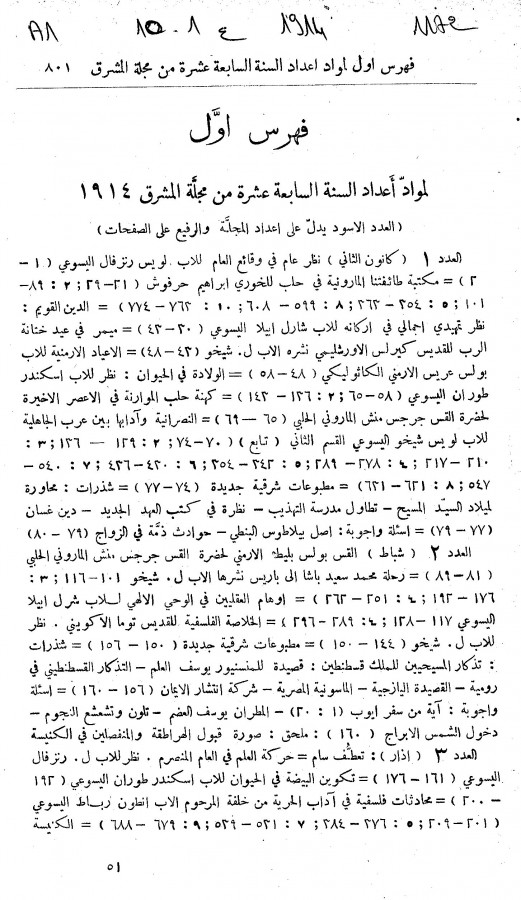 A1 10.1 ع 1914
فهرس اول لمواد اعداد السنة السابعة عشرة من مجلة المشرق ٨٠١
فهرس اوَّل
لموادّ أَعداد السنة السابعة عشرة من مجلَّة المشرق ١٩١٤
(العدد الاسود يدلّ على اعداد المجلَّة والرفيع على الصفحات)
العدد ١ (كانون الثاني) نظر عام في وقائع العام للاب لويس رنزفال اليسوعي (١-
٢) = مكتبة طائفتنا المارونية في حلب للخوري ابراهيم حرفوش (٢١-٢٩; ٢: ٨٩-
١٠١; ٥: ٢٥٤-٢٦٢; ٨: ٥٩٩-٦٠٨; ١٠: ٧٦٢-٧٧٤) = الدين القويم:
نظر تمهيدي اجمالي في اركانه للاب شارل ابيلا اليسوعي (٣٠-٤٢) = ميمر في عيد ختانة
الرب للقديس كيرلس الاورشليمي نشره الاب ل. شيخو (٤٢-٤٨) = الاعياد الارمنية للاب
بولس عريس الارمني الكاثوليكي (٤٨-٥٨) = الولادة في الحيوان: نظر للاب اسكندر
طوران اليسوعي (٥٨-٦٥; ٢: ١٣٦-١٤٣) = كهنة حلب الموارنة في الاعصر الاخيرة
لحضرة القس جرجس منش الماروني الحلبي (٦٥-٦٩) = النصرانية وآدابها بين عرب الجاهلية
للاب لويس شيخو اليسوعي القسم الثاني (تابع) (٧٠-٧٤; ٢: ١٢٩-١٣٦; ٣:
٢١٠-٢١٧; ٤: ٢٧٨-٢٨٩; ٥: ٣٤٢-٣٥٤; ٦: ٤٢٠-٤٣٦; ٧: ٥٤٠-
٥٤٧; ٨: ٦٢١-٦٣١) = مطبوعات شرقية جديدة (٧٤-٧٧) = شذرات: محاورة
لميلاد السيّد المسيح - تطاول مدرسة التهذيب - نظرة في كتب العهد الجديد - دين غسان
(٧٧-٧٩) = اسئلة واجوبة: اصل بيلاطوس البنطي - حوادث ذمَّة في الزواج (٧٩-٨٠)
العدد ٢ (شباط) القس بولس بليط الارمني لحضرة القس جرجس منش الماروني الحلبي
(٨١-٨٩) = رحلة محمد سعيد باشا الى باريس نشرها الاب ل. شيخو ١٠١-١١٦; ٣:
١٧٦-١٩٢; ٤: ٢٥١-٢٦٢) = اوهام العقليين في الوحي الالهي للاب شرل ابيلا
اليسوعي ١١٧-١٢٨; ٤: ٢٨٩-٢٩٦) = الخلاصة الفلسفية للقديس توما الاكويني. نظر
للاب ل. شيخو (١٤٤-١٥٠) = مطبوعات شرقية جديدة (١٥٠-١٥٦) = شذرات
: تذكار المسيحيين للملك قسطنطين: قصيدة للمنسنيور يوسف العلم - التذكار القسطنطيني في
رومية - القصيدة اليازجية - الماسونية المصرية - شركة إنتشار الايمان (١٥٦-١٦٠) = اسئلة
واجوبة: آية من سفر ايوب (١: ٢٠) - المطران يوسف العضم - تلون وتشعشع النجوم -
دخول الشمس الابراج (١٦٠): ملحق: صورة قبول الهراطقة والمنفصلين في الكنيسة
العدد ٣ (اذار): تعطُّف سام = حركة العلم في العام المنصرم. نظر للاب ل. رنزفال
اليسوعي (١٦١-١٧٦) = تكوين البيضة في الحيوان للاب اسكندر طوران اليسوعي (١٩٢
-٢٠٠) = محادثات فلسفية في آداب الحرية من خلفة المرحوم الاب انطون رباط اليسوعي
(٢٠١-٢٠٩; ٥: ٢٧٦-٢٨٤; ٧: ٥٢١-٥٢٩; ٩: ٦٧٩-٦٨٨) = الكنيسة
٥١